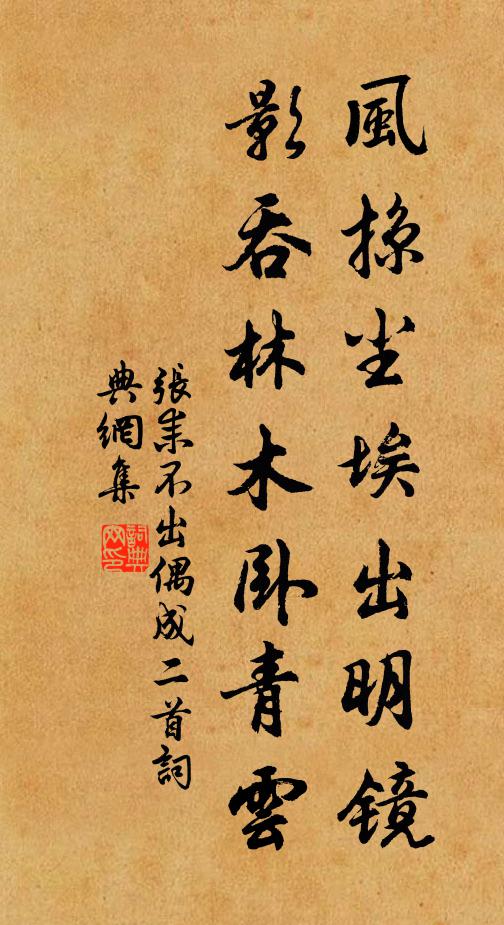 風掠尘埃出明镜
影吞林木卧青雲
張耒不出偶成二首詞
典網集
詞典
网印